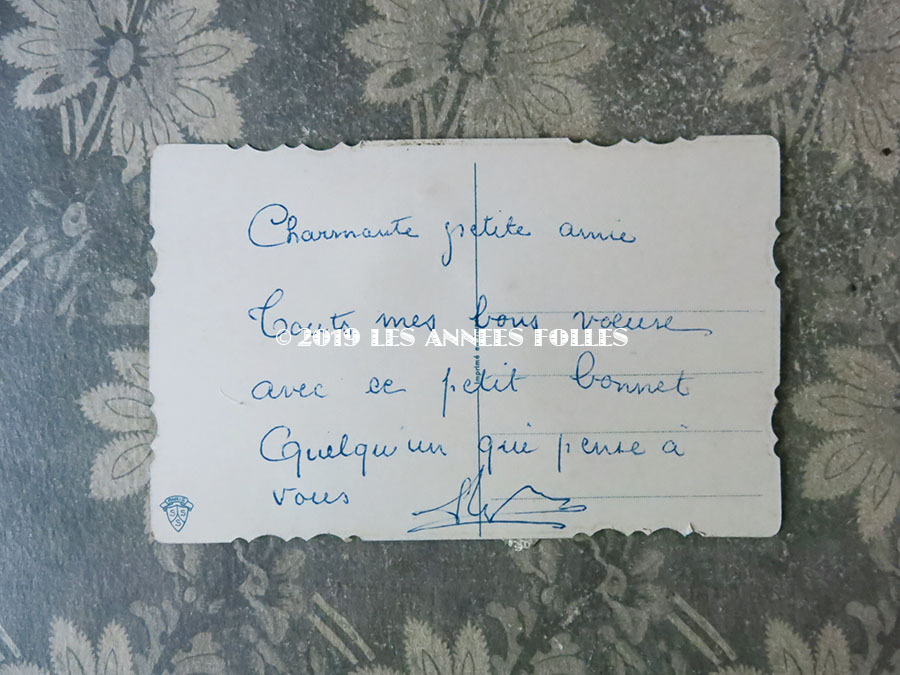 Charmante petite amie
Touts mes bons voeuxe
© 2019 LES ANNEES FOLLES
avec ce petit bonnet
Quelqu'un qui pense à
vous
Imprimé e
PARIS
S S
S